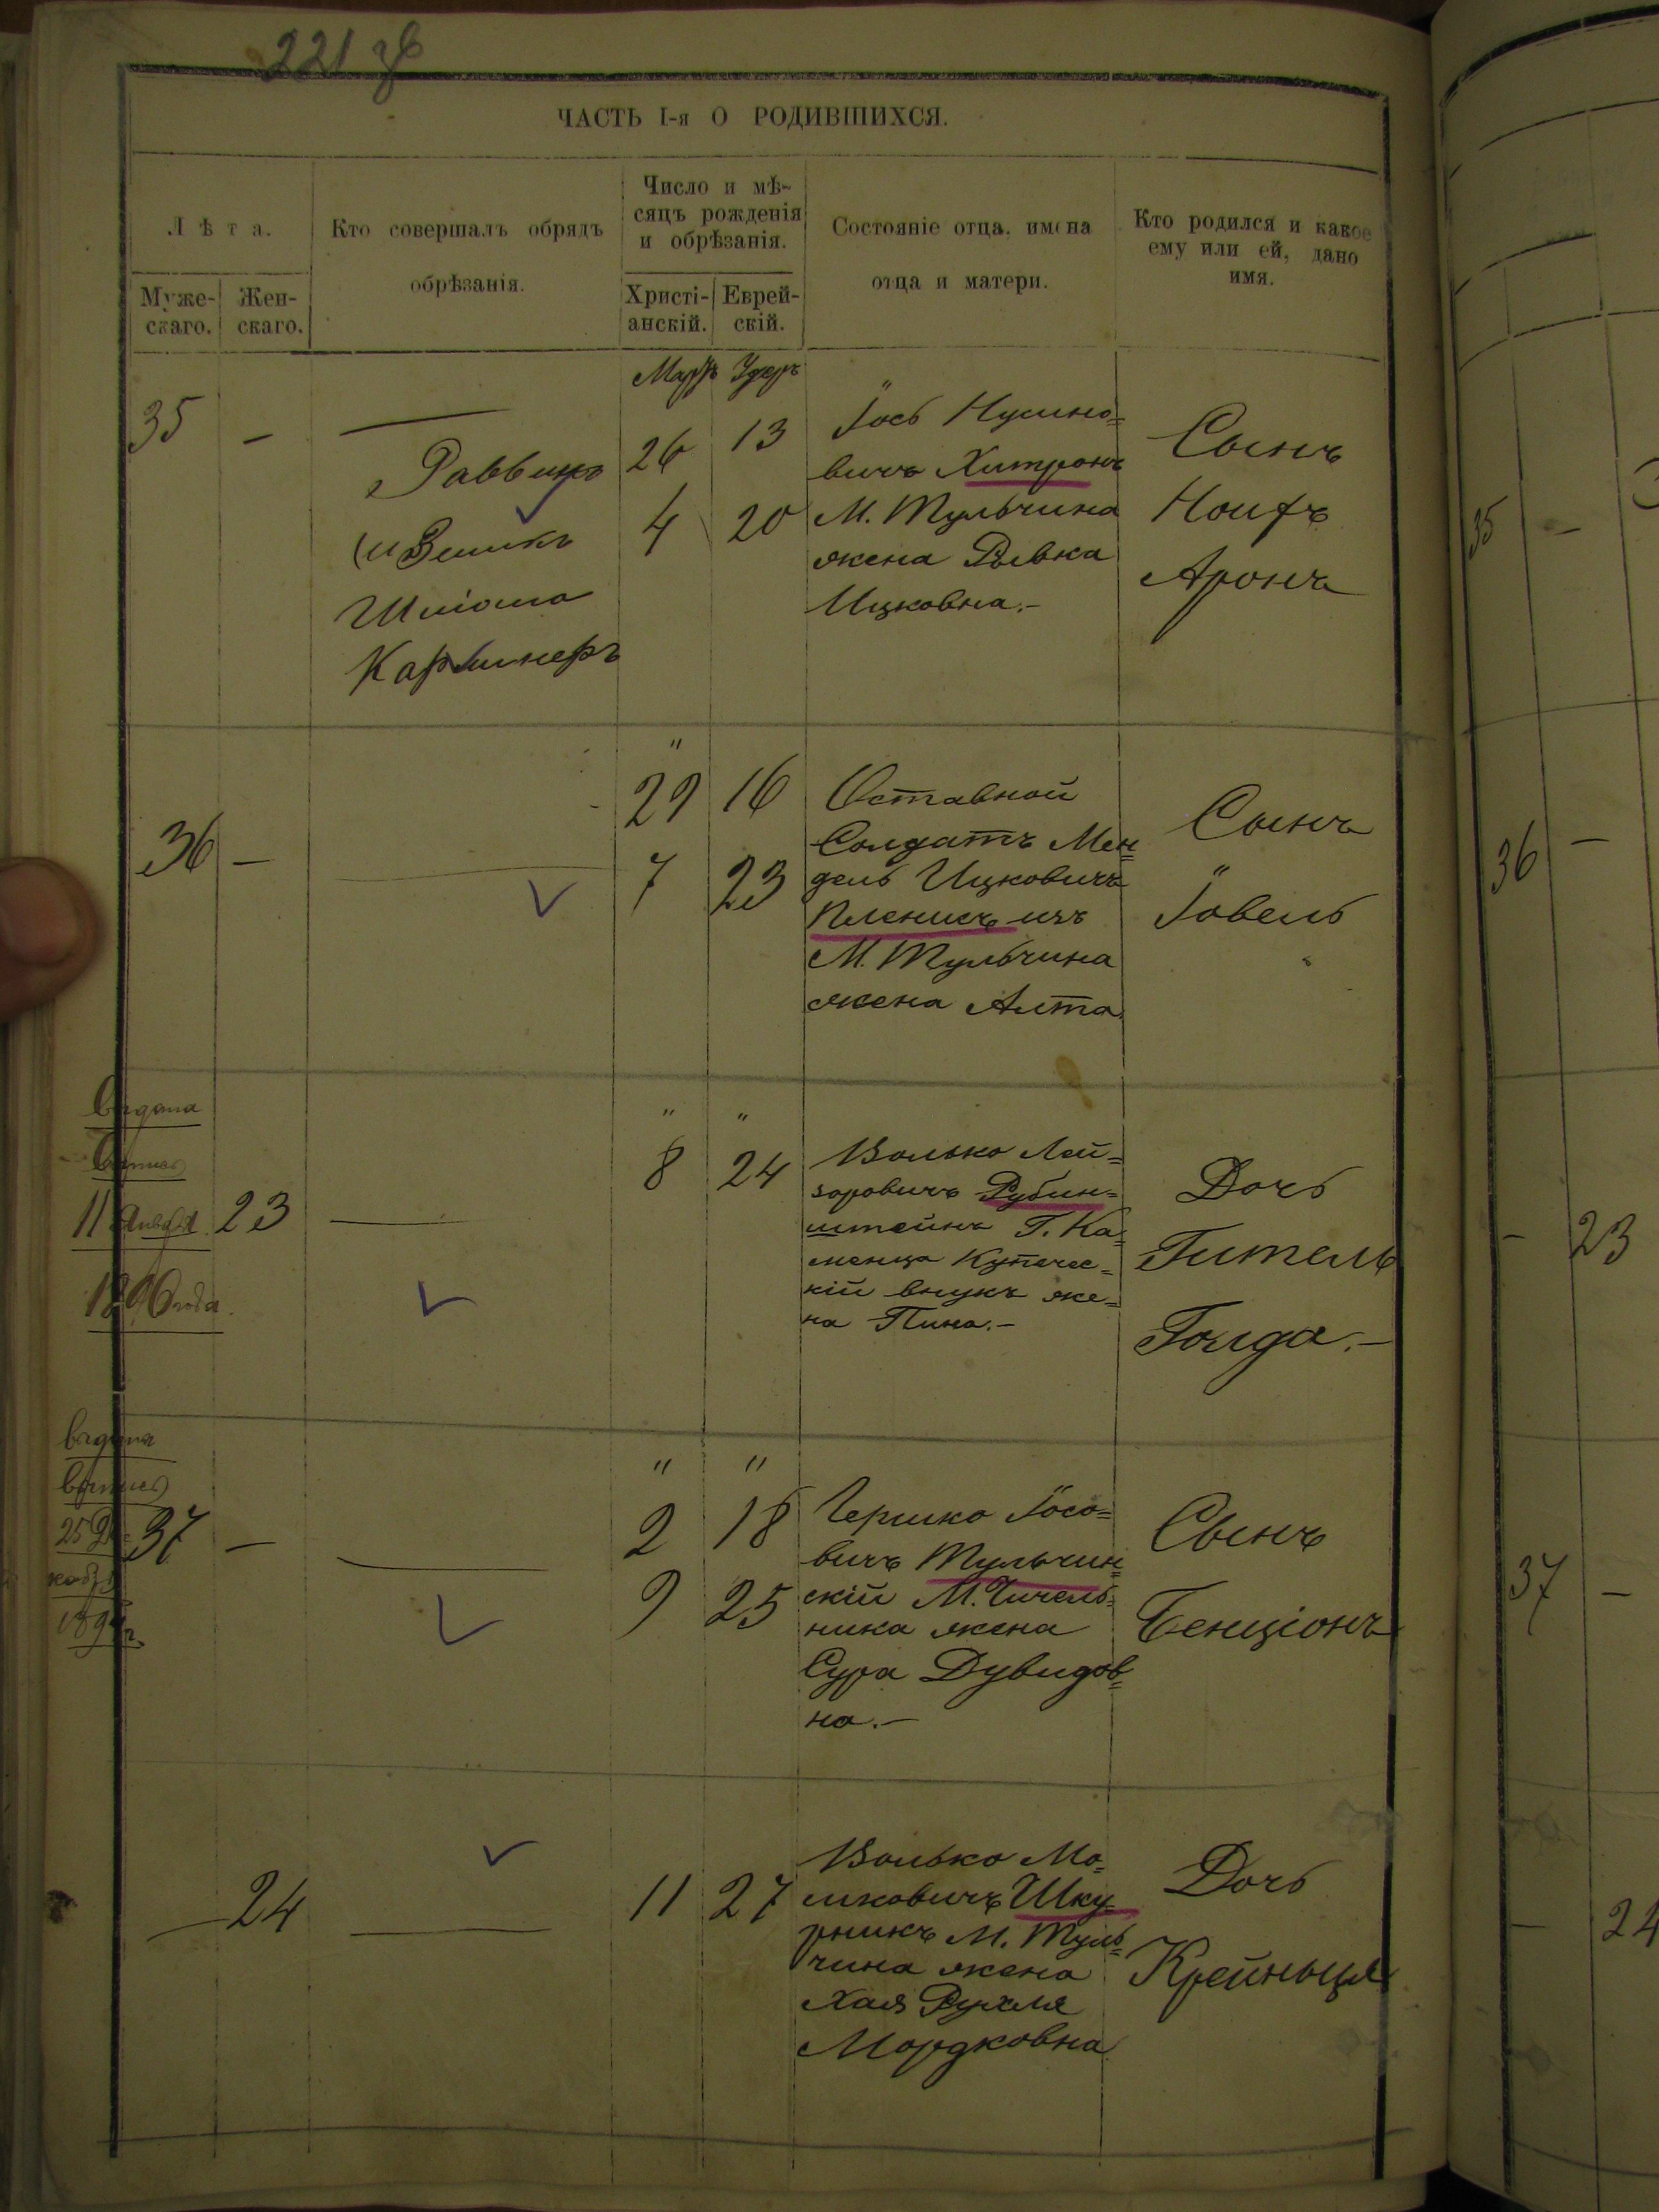 221 об
ЧАСТЬ I-я О РОДИВШИХСЯ.
Лѣта.
Муже-
скаго.
Жен-
скаго.
Кто совершалъ обрядъ
обрѣзанія.
Число и мѣ-
сяцъ рожденія
и обрѣзанія.
Христі-
анскій.
Еврей-
скій.
Состояніе отца, имена
отца и матери.
Кто родился и какое
ему или ей, дано
имя.
35
-
Раввинъ
Шліома
26
4
13
20
Іось Нусино=
вичъ Хитронъ
М. Тульчина
жена Рывка
Ицковна.-
Сынъ
Аронъ
36
-
"
29
7
16
23
Оставной
Солдатъ Мен=
дель Ицковичъ
изъ
М. Тульчина
жена Алта
Сынъ
Іовель
выдана
выпись
11 Января
1896 года.
23
"
8
"
24
Волько Лей=
зоровичъ Рубин=
штейнъ Г. Ка=
менца Купечес=
кій внукъ же=
на Пина.-
Дочь
Гитель
Голда.-
выдана
выпись
37
-
"
2
9
"
18
25
Гершко Іосо=
вичъ Тульчин=
скій М. Чичель=
ника жена
Сура Дувидов=
на.-
Сынъ
Бенціонъ
24
11
27
Волько Мо=
шковичъ Шку=
рникъ М. Туль=
чина жена
Хая Рухля
Мордковна
Дочь
Крейныця
35
-
36
-
-
23
37
-
-
24